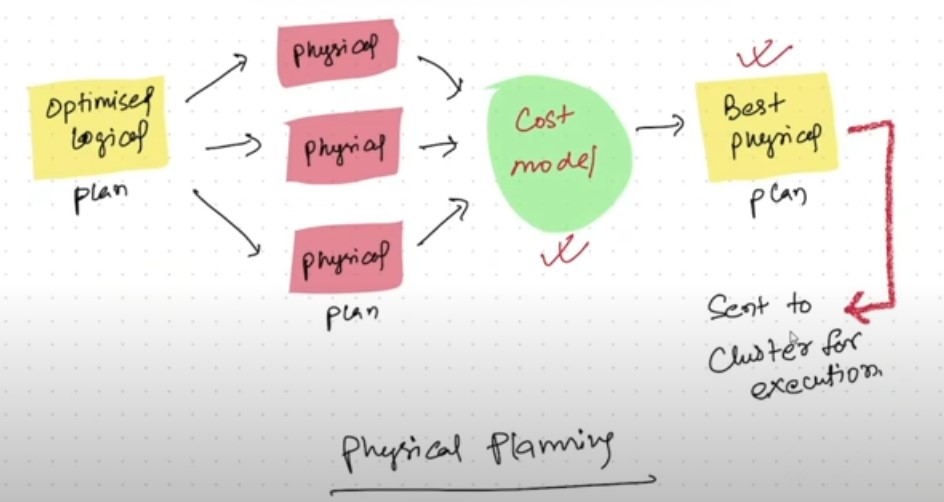 Optimised
Logical
plan
Physical
Physical
Physical
plan
Cost
model
Best
Physical
plan
Sent to
Cluster for
execution
Physical Planning